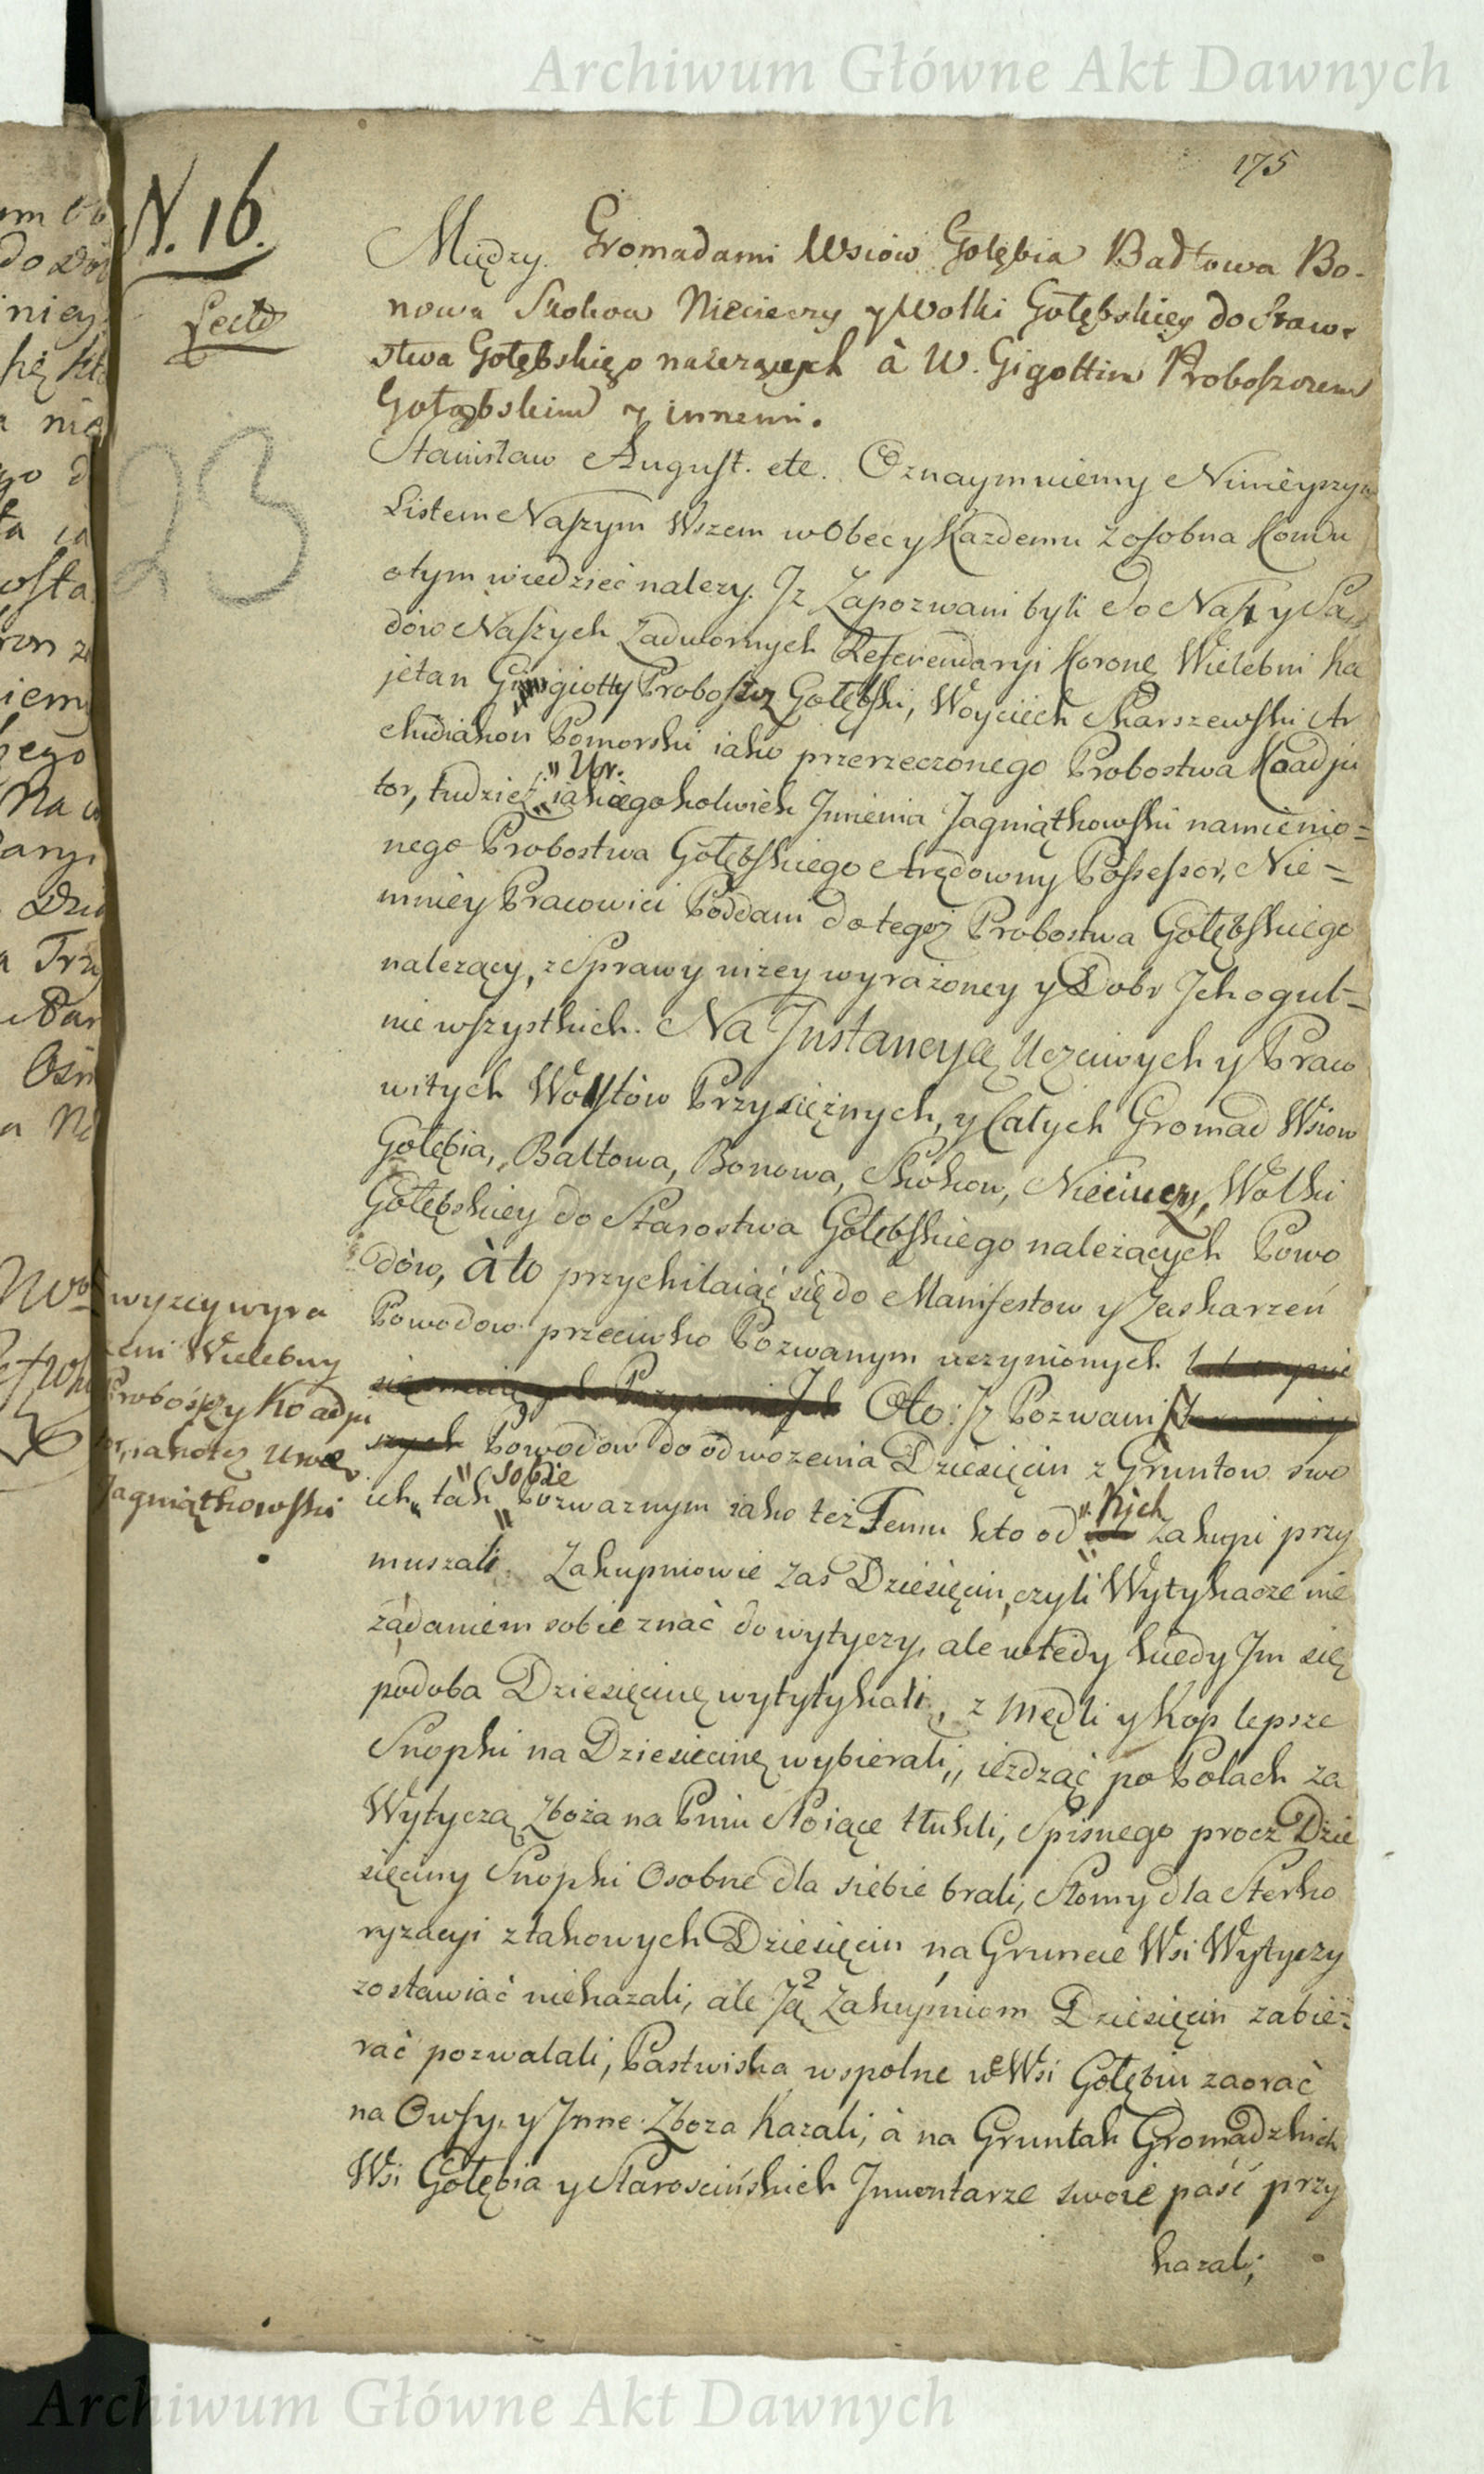 Archiwum Główne Akt Dawnych
175
N. 16.
Lecta
23
Między Gromadami Wsiow Gołębia Badłowa Bo-
nowa Skokow Niecieczy y Wolki Gołębskiey do Staro-
stwa Gołębskiego należących à W. Gigottim Proboszczem
Gołąbskim y innemi.
Stanisław August. etc. Oznaymuiemy Ninieyszym
Listem Naszym Wszem wobec y Kazdemu zosobna Komu
otym wiedzieć nalezy. Jz Zapozwani byli do Nas y Są
dów Naszych Zadwornych Referendaryi Koronę Wielebni Ka
jetan Gigiotty Proboszcz Gołębski, Woyciech Skarszewski Ar
chidiakon Pomorski iako przerzeczonego Probostwa Koadju
tor, tudziez " Ur. iakiegokolwiek Jmienia Jagniątkowski namienio=
nego Probostwa Gołębskiego Arędowny Possessor, Nie=
mniey Pracowici Poddani do tegoż Probostwa Gołębskiego
nalezący, z Sprawy nizey wyrażoney y Dobr Jch ogul=
nie wszystkich. Na Jnstancyą Uczciwych y Praco
witych Woytów Przysiężnych, y Całych Gromad Wsiow
Gołębia, Bałtowa, Bonowa, Skokow, Niecieczy, Wolki
Gołębskiey do Starostwa Gołębskiego należących Powo
dów, à to przychilaiąć się do Manifestow y Zaskarzeń
Powodow przeciwko Pozwanym uczynionych
Oto: Jz Pozwani
Powodow do odwozenia Dziesięcin z Gruntow swo
ich, tak " sobie Pozwaznym iako też Temu kto od " Nich Zakupi przy
muszali. Zakupniowie zas Dziesięcin, czyli Wytykacze nie
żądaniem sobie znać do wytyczy, ale wtedy kiedy Jm się
podoba Dziesięcinę wytytykali, z Mędli y Kop lepsze
Snopki na Dziesięcinę wybierali, ieżdząć po Polach za
Wytyczą Zboża na Pniu Stoiące tłukli, Spisnego procz Dzie
sięciny Snopki Osobne dla siebie brali, Słomy dla Sterko
ryzacyi z takowych Dziesięcin na Gruncie Wsi Wytyczy
zostawiać niekazali, ale Ją Zakupniom Dziesięcin zabie=
rać pozwalali, Pastwiska wspolne we Wsi Gołębiu zaorać
na Owsy, y Jnne Zboza Kazali, à na Gruntach Gromadzkich
Wsi Gołębia y Starościńskich Jnwentarze swoie paść przy
kazali;
wyzey wyra
zeni Wielebny
Proboszcz y Koadju
tor, iako tez Uro
Jagniątkowski
Archiwum Główne Akt Dawnych